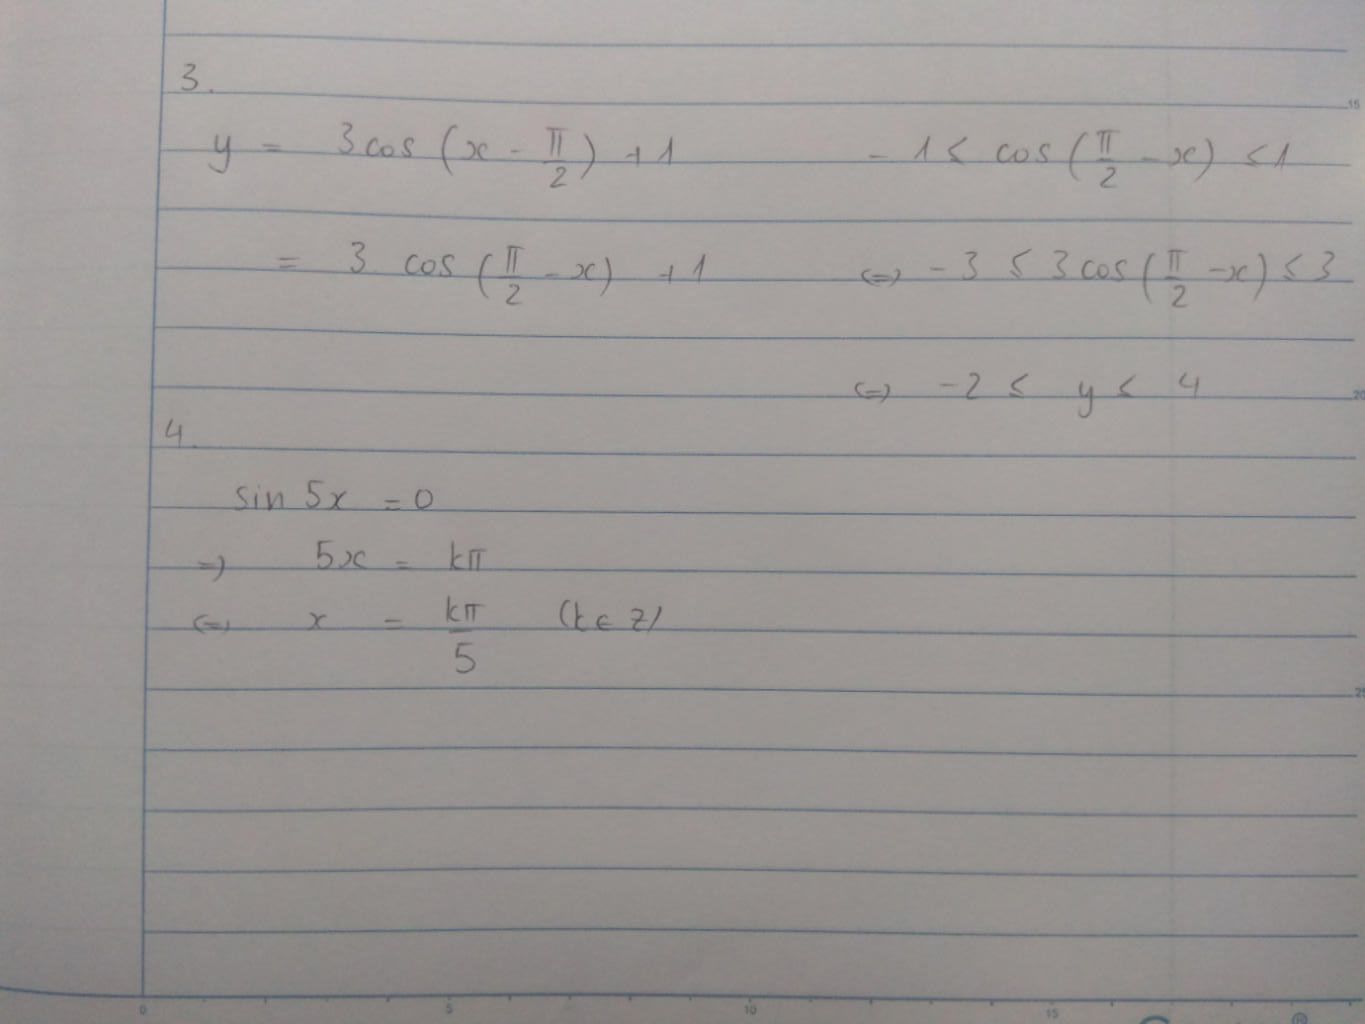 3.
y = 3cos(x - π/2) + 1
= 3 cos(π/2 - x) + 1
- 1 ≤ cos(π/2 - x) ≤ 1
<=> - 3 ≤ 3cos(π/2 - x) ≤ 3
<=> -2 ≤ y ≤ 4
4.
sin 5x = 0
=> 5x = kπ
<=> x = kπ/5 (k ∈ Z)
15
20
25
0 5 10 15
®